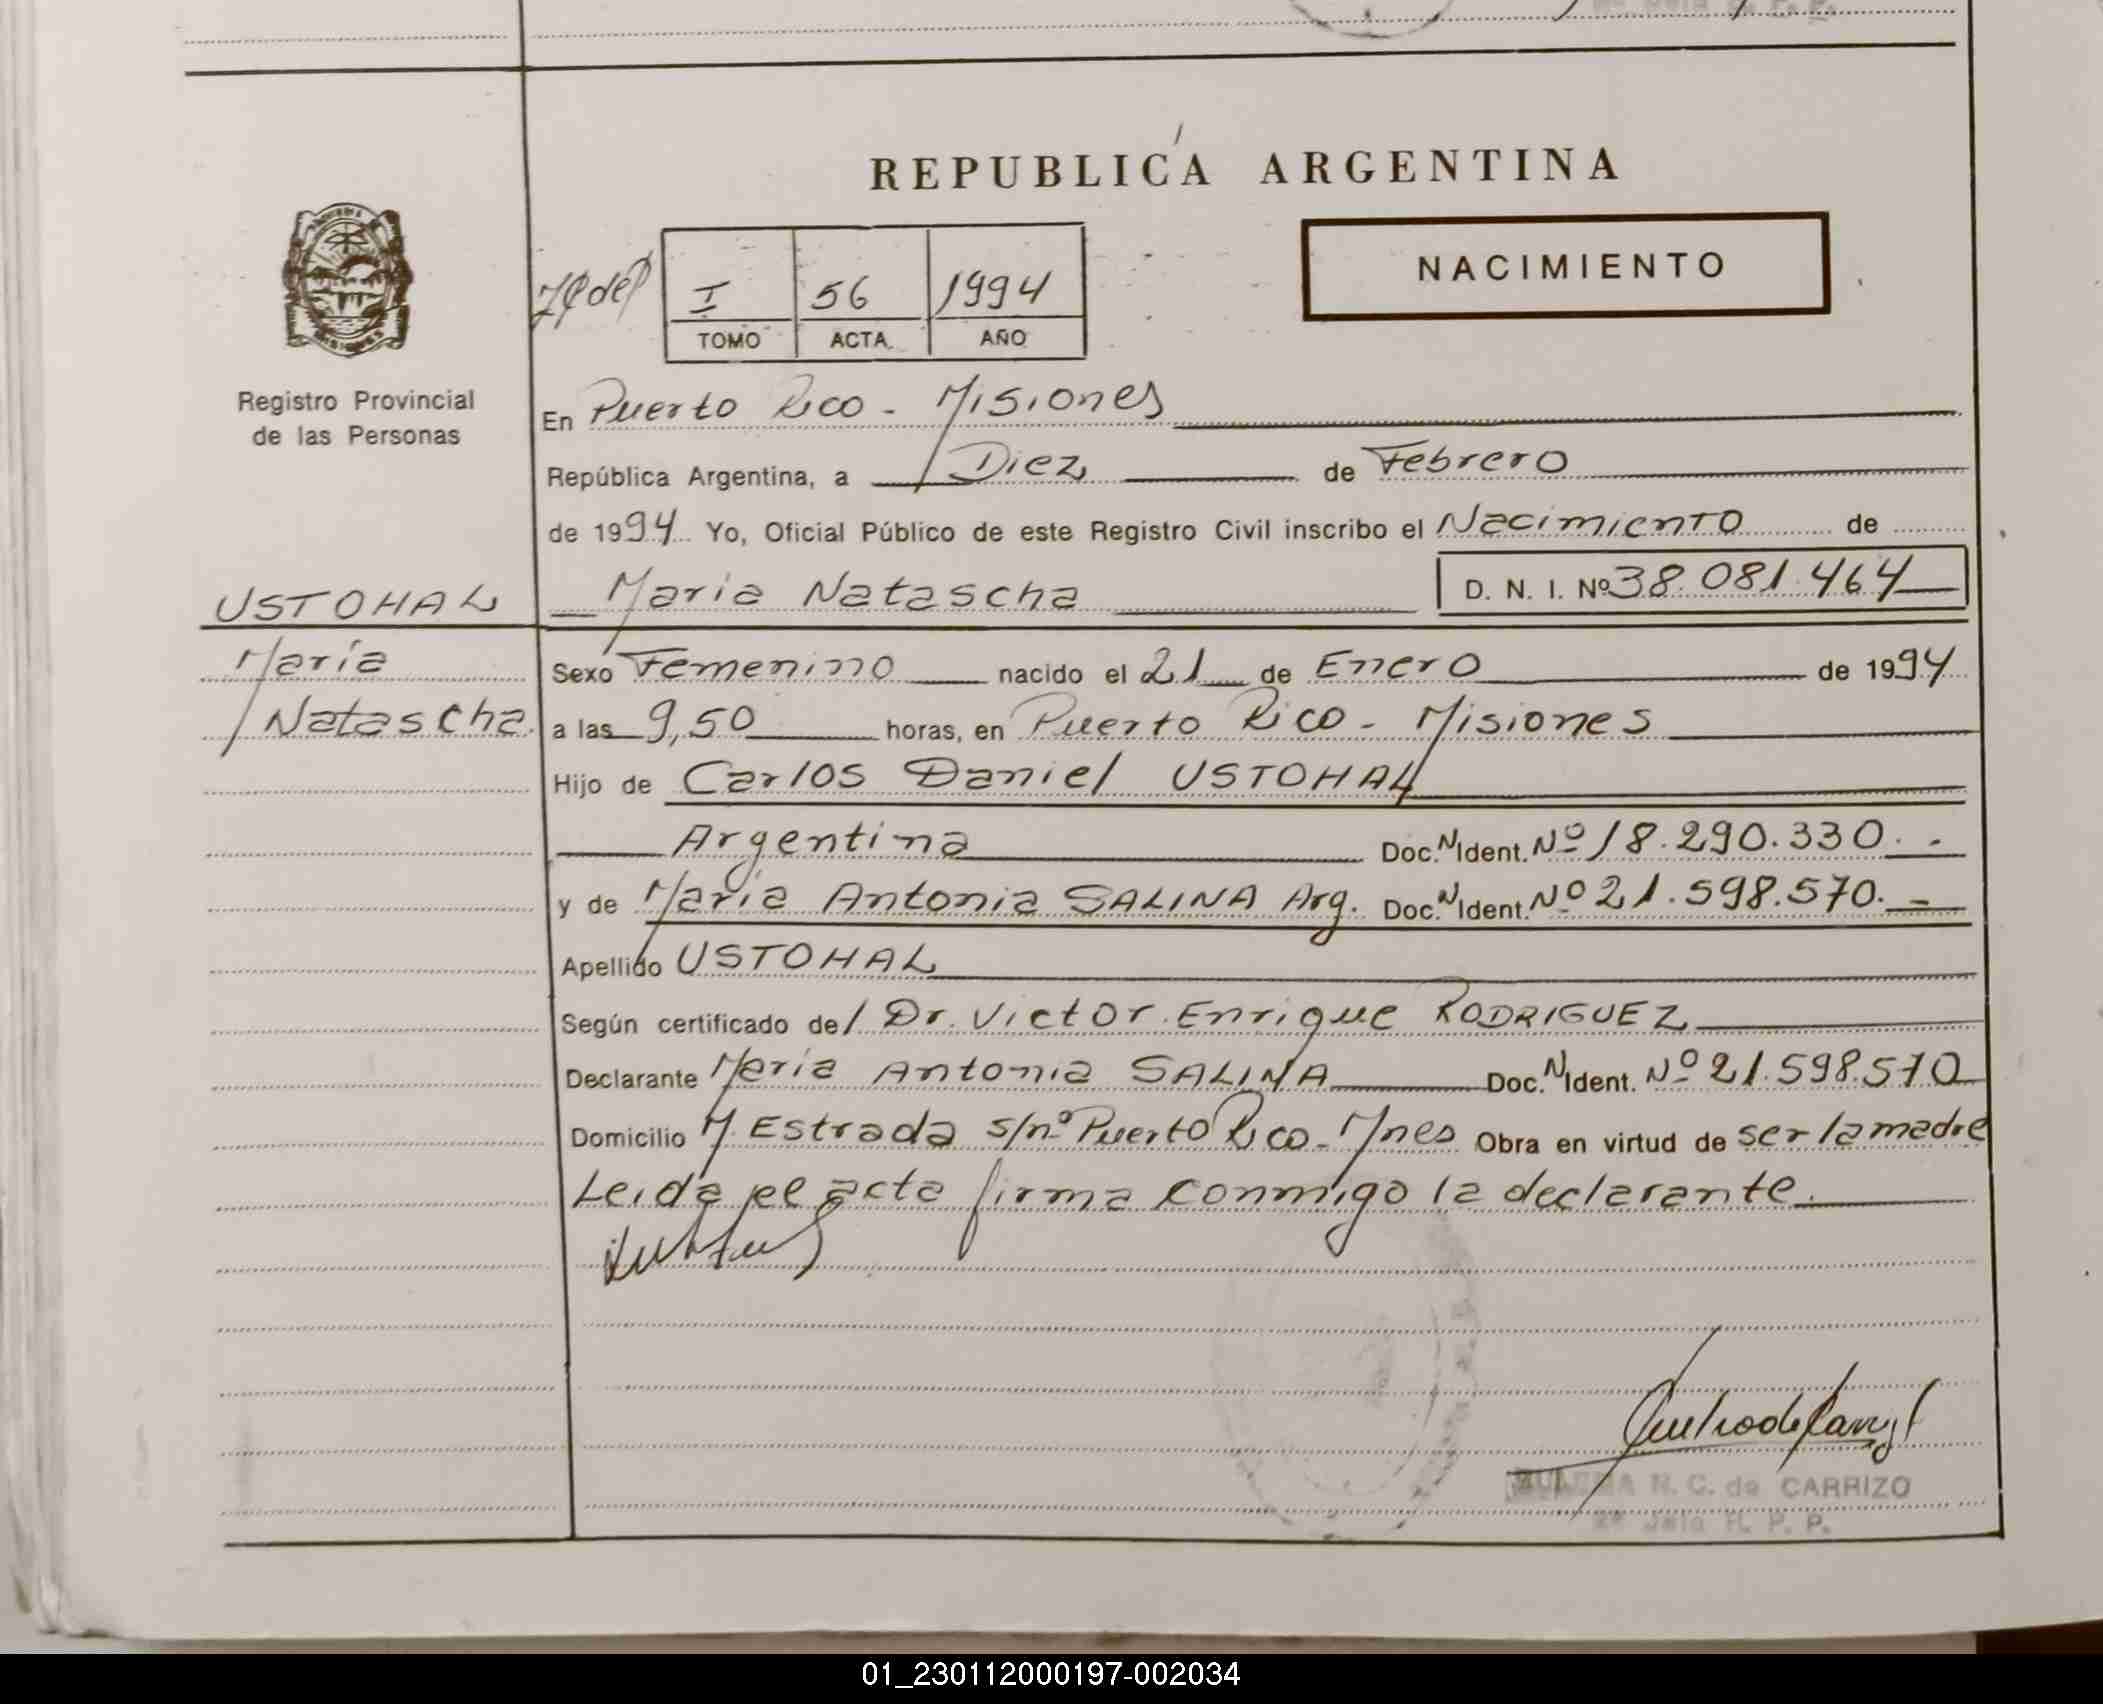 REPUBLICA ARGENTINA
NACIMIENTO
I 56 1994
TOMO ACTA AÑO
Registro Provincial
de las Personas
En Puerto Rico - Misiones
República Argentina, a Diez de Febrero
de 1994 Yo, Oficial Público de este Registro Civil inscribo el Nacimiento de
USTOHAL
Maria Natascha D. N. I. Nº 38.081.464
María
Natascha.
Sexo Femenino nacido el 21 de Enero de 1994
a las 9,50 horas, en Puerto Rico - Misiones
Hijo de Carlos Daniel USTOHAL
Argentina Doc. N Ident. Nº 18.290.330. -
y de María Antonia SALINA Arg. Doc. N Ident. Nº 21.598.570. -
Apellido USTOHAL
Según certificado del Dr. Victor Enrique RODRIGUEZ
Declarante María Antonia SALINA Doc. N Ident. Nº 21.598.570
Domicilio M. Estrada s/nº Puerto Rico - Mnes Obra en virtud de ser la madre
Leida el acta firma conmigo la declarante.
N. C. de CARRIZO
R. P. P.
01_230112000197-002034